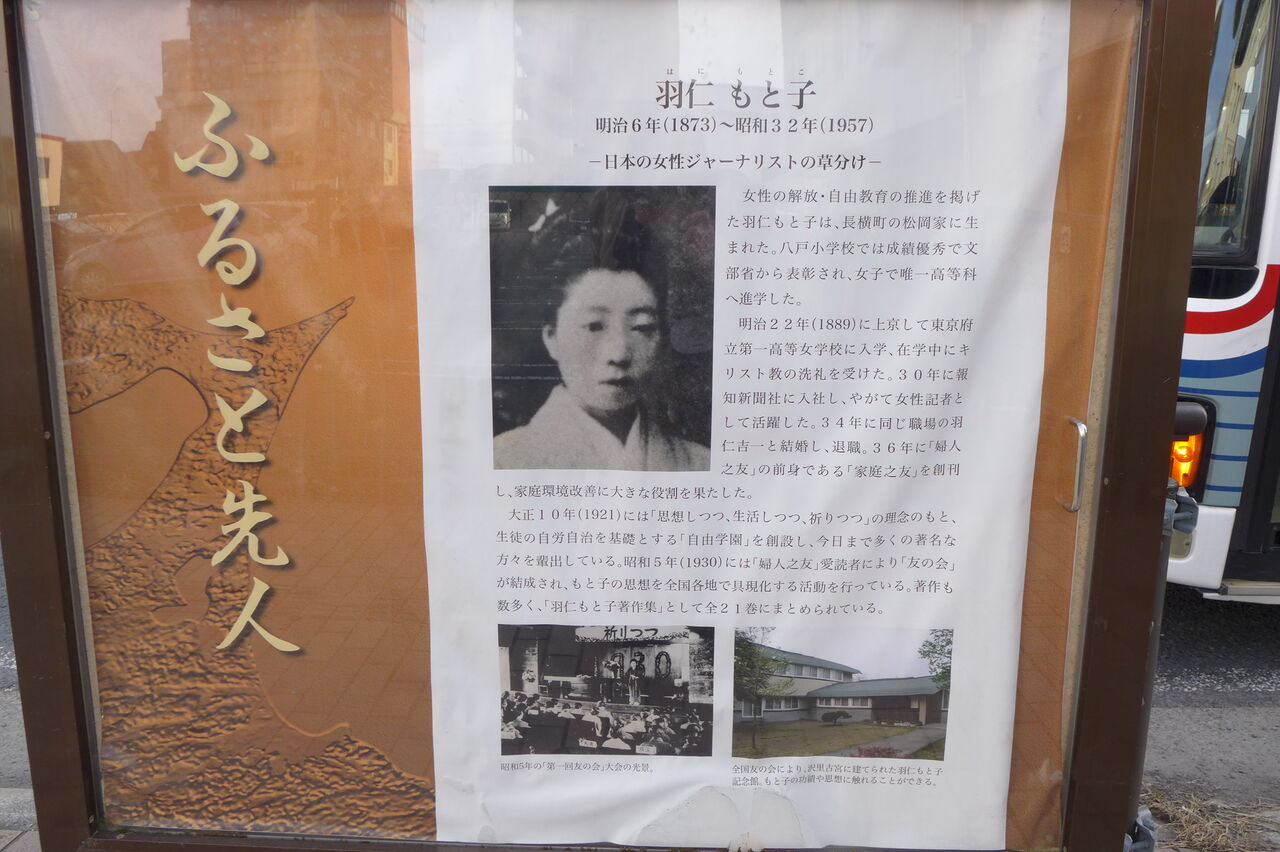 ふるさと先人
はにもとこ
羽仁 もと子
明治6年(1873)～昭和32年(1957)
－日本の女性ジャーナリストの草分け－
女性の解放・自由教育の推進を掲げ
た羽仁もと子は、長横町の松岡家に生
まれた。八戸小学校では成績優秀で文
部省から表彰され、女子で唯一高等科
へ進学した。
明治22年(1889)に上京して東京府
立第一高等女学校に入学、在学中にキ
リスト教の洗礼を受けた。30年に報
知新聞社に入社し、やがて女性記者と
して活躍した。34年に同じ職場の羽
仁吉一と結婚し、退職。36年に「婦人
之友」の前身である「家庭之友」を創刊
し、家庭環境改善に大きな役割を果たした。
大正10年(1921)には「思想しつつ、生活しつつ、祈りつつ」の理念のもと、
生徒の自労自治を基礎とする「自由学園」を創設し、今日まで多くの著名な
方々を輩出している。昭和5年(1930)には「婦人之友」愛読者により「友の会」
が結成され、もと子の思想を全国各地で具現化する活動を行っている。著作も
数多く、「羽仁もと子著作集」として全21巻にまとめられている。
祈りつつ
昭和5年の「第一回友の会」大会の光景。
全国友の会により、沢里古宮に建てられた羽仁もと子
記念館。もと子の功績や思想に触れることができる。